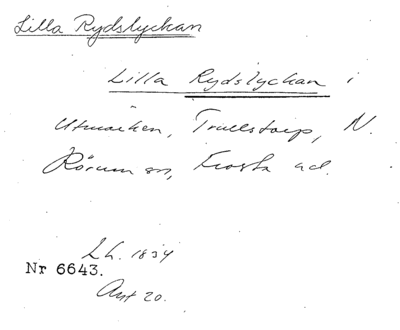 Lilla Rydslyckan
Lilla Rydslyckan i
Utmarken, Trulstorp, N.
Rörum sn, Frosta hd.
L.h. 1834
Nr 6643.
Akt 20.